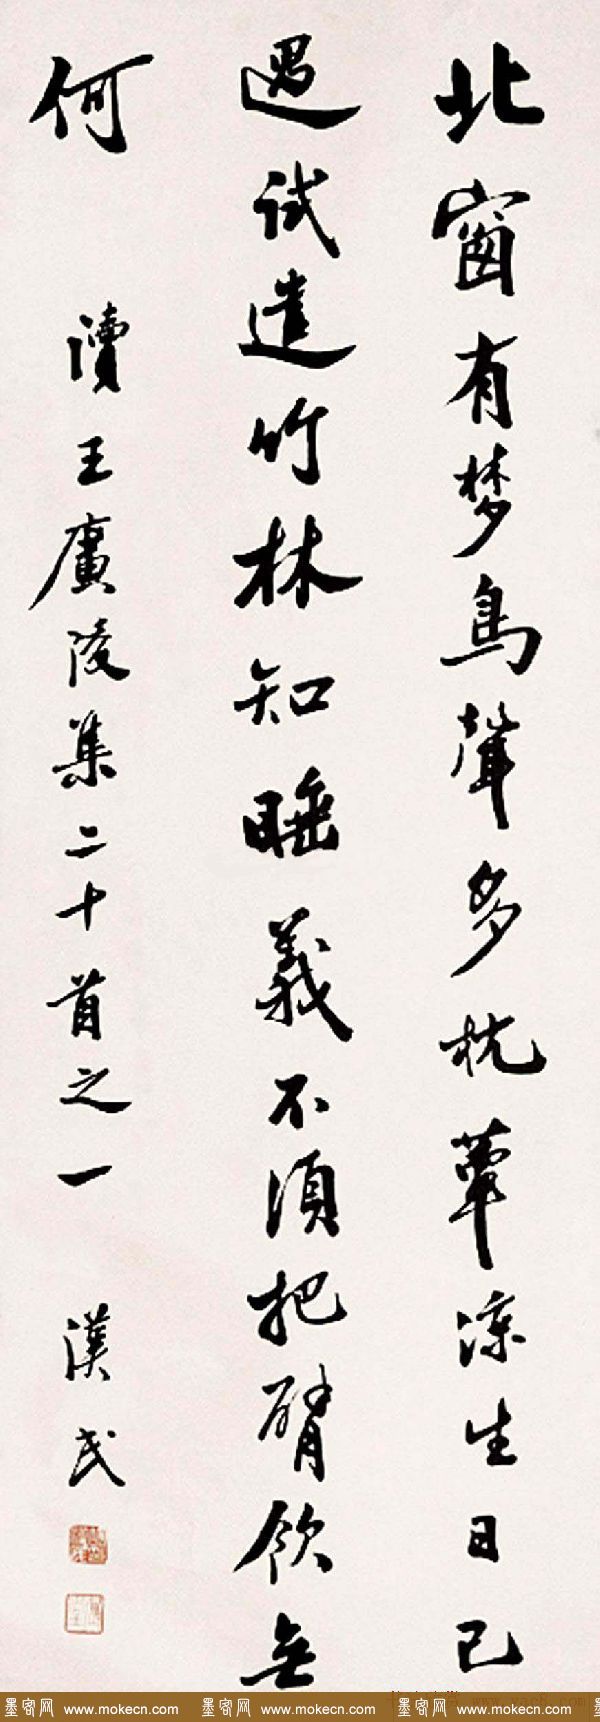 北窗有梦鳥聲多枕簟涼生日已
過試遣竹林知睡義不須把臂飲無
何
讀王廣陵集二十首之一 漢民
墨客网 www.mokecn.com 墨客网 www.mokecn.com 墨客网 www.mokecn.com